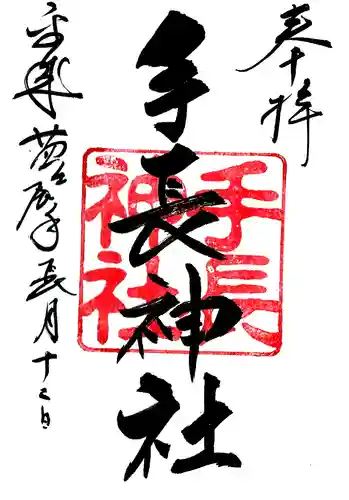 奉拝
手長神社
手長
神社
平成 長月十二日